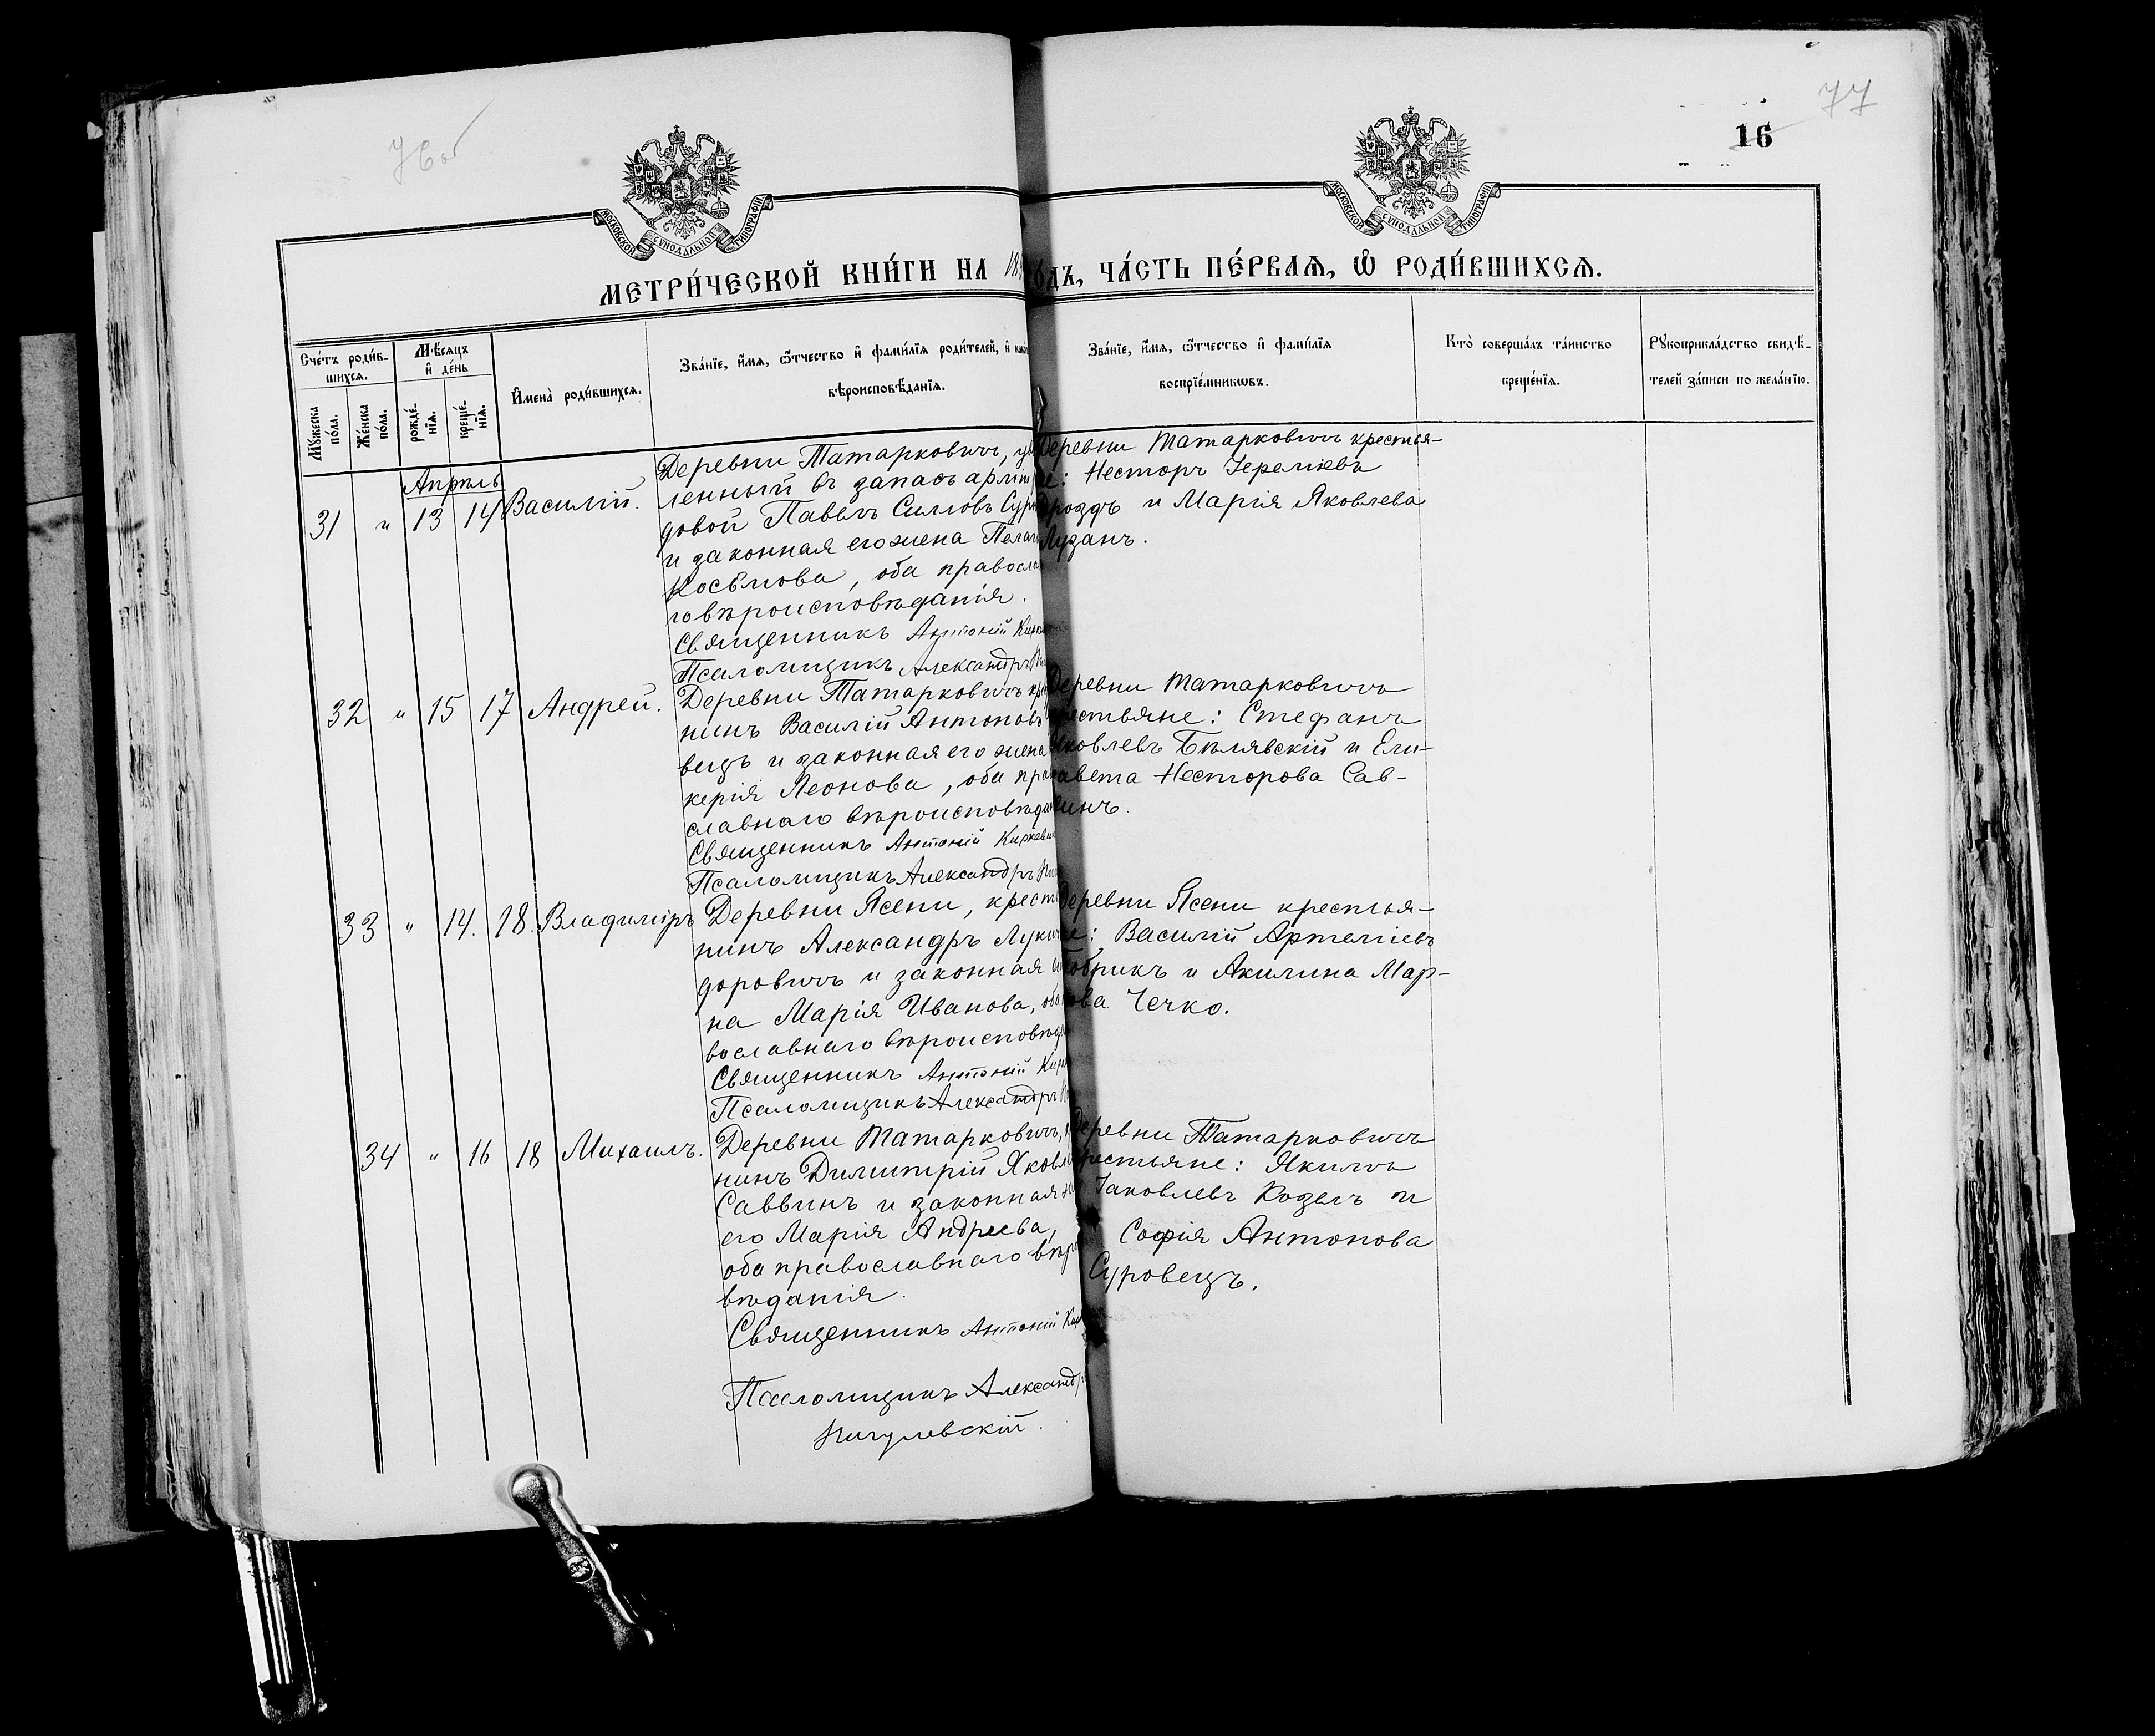 76 об
77
16
МОСКОВСКОЙ СѴНОДАЛЬНОЙ ТИПОГРАФІИ
МОСКОВСКОЙ СѴНОДАЛЬНОЙ ТИПОГРАФІИ
МЕТРИ́ЧЕСКОЙ КНИ́ГИ НА 18
ОДЪ, ЧА́СТЬ ПЕ́РВАѦ, Ѿ РОДИ́ВШИХСѦ.
Сче́тъ роди́в-
шихсѧ.
Мꙋ́жеска по́ла.
Же́нска по́ла.
Мѣ́сѧцъ и҆ де́нь
рожде́-нїѧ.
креще́-нїѧ.
И҆мена̀ роди́вшихсѧ.
Зва́нїе, и҆́мѧ, ѻ҆́тчество и҆ фами́лїѧ роди́телей, и҆
вѣроисповѣ́данїѧ.
Зва́нїе, и҆́мѧ, ѻ҆́тчество и҆ фами́лїѧ
воспрїе́мникѡвъ.
Кто̀ соверша́лъ та́инство
креще́нїѧ.
Рꙋкоприкла́дство свидѣ́-
телей за́писи по жела́нїю.
Апрѣль
31 " 13 14 Василій.
Деревни Татарковичъ, у
ленный въ запасъ арміи
довой Павелъ Симовъ Сур
и законная его жена Пелаг
Косьмова, оба правосла
го вѣроисповѣданія.
Священникъ Антоній Кирк
Псаломщикъ Александръ
Деревни Татарковичъ крестья-
не: Несторъ Іереміевъ
Дроздъ и Марія Яковлева
Лузанъ.
32 " 15 17 Андрей.
Деревни Татарковичъ кр
нинъ Василій Антоновъ
вецъ и законная его жена
керія Леонова, оба пра
славнаго вѣроисповѣда
Священникъ Антоній Киркеви
Псаломщикъ Александръ
Деревни Татарковичъ
крестьяне: Стефанъ
Яковлевъ Бѣлявскій и Ели-
завета Несторова Сав-
винъ.
33 " 14. 18. Владиміръ
Деревни Ясени, крестья
нинъ Александръ Лукич
доровичъ и законная
на Марія Иванова, оба
вославнаго вѣроисповѣд
Священникъ Антоній Кирк
Псаломщикъ Александръ
Деревни Ясени крестья-
не: Василій Артеміевъ
Бобрикъ и Акилина Мар-
кова Чечко.
34 " 16 18 Михаилъ.
Деревни Татарковичъ,
нинъ Димитрій Яковле
Саввинъ и законная
его Марія Андреева,
оба православнаго вѣро
вѣданія.
Священникъ Антоній Кир
Псаломщикъ Александръ
Пигулевскій.
Деревни Татарковичъ
крестьяне: Якимъ
Іаковлевъ Козелъ и
Софія Антонова
Суровецъ.